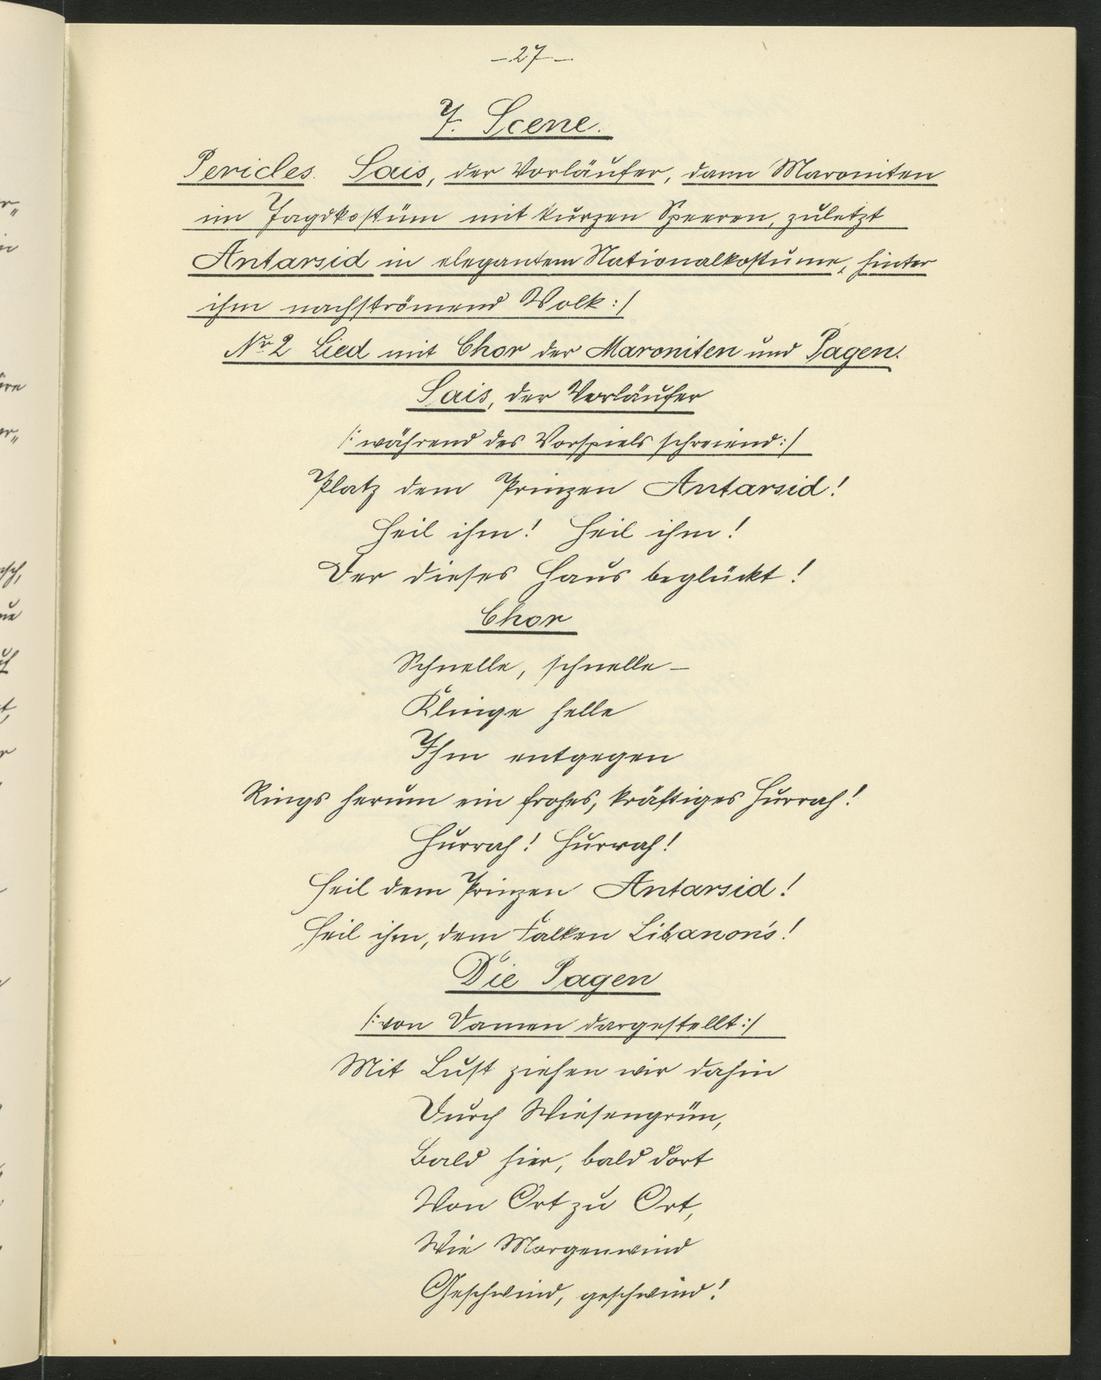 -27-
7. Scene.
Pericles. Sais, der Vorläufer, dann Maroniten
im Jagdkostüm mit kurzen Speeren, zuletzt
Antarsid in elegantem Nationalkostume, hinter
ihm nachströmend Volk:/
No 2 Lied mit Chor der Maroniten und Pagen.
Sais, der Vorläufer
/: während des Vorspiels schreiend:/
Platz dem Prinzen Antarsid!
Heil ihm! Heil ihm!
Der dieses Haus beglückt!
Chor
Schnelle, schnelle —
Klinge helle
Ihm entgegen
Rings herum ein frohes, kräftiges Hurrah!
Hurrah! Hurrah!
Heil dem Prinzen Antarsid!
Heil ihm, dem Falken Libanon's!
Die Pagen
/: von Damen dargestellt:/
Mit Lust ziehen wir dahin
Durch Wiesengrün,
Bald hier, bald dort
Von Ort zu Ort,
Wie Morgenwind
Geschwind, geschwind!